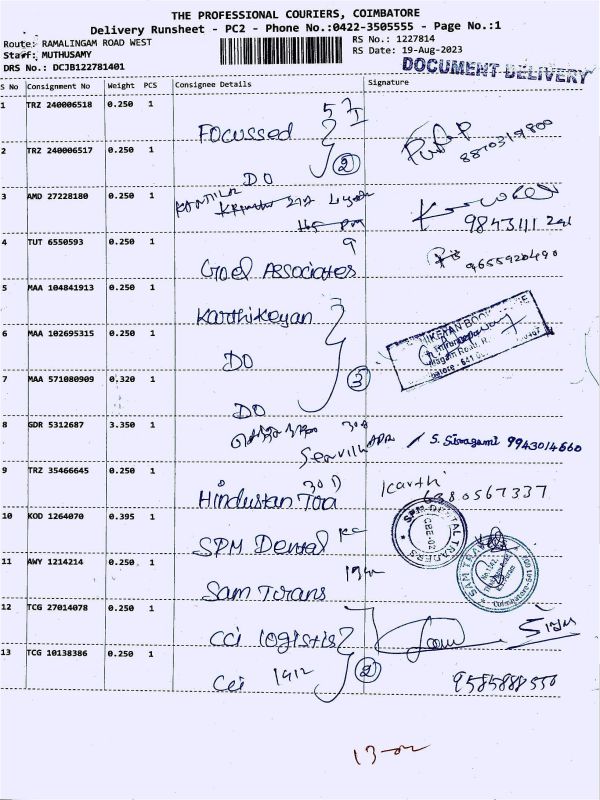 THE PROFESSIONAL COURIERS, COIMBATORE
Delivery Runsheet - PC2 - Phone No.:0422-3505555 - Page No.:1
Route: RAMALINGAM ROAD WEST
RS No.: 1227814
Staff: MUTHUSAMY
RS Date: 19-Aug-2023
DRS No.: DCJB122781401
DOCUMENT DELIVERY
S No Consignment No Weight PCS Consignee Details Signature
1 TRZ 240006518 0.250 1 Focussed
8870319800
2 TRZ 240006517 0.250 1 DO 2
3 AMD 27228180 0.250 1
4 TUT 6550593 0.250 1 Goel Associates 9655920490
5 MAA 104841913 0.250 1 Karthikeyan
6 MAA 102695315 0.250 1 DO
7 MAA 571080909 0.320 1 DO 3
8 GDR 5312687 3.350 1 S. Sivagami 9943014660
9 TRZ 35466645 0.250 1 Hindustan Karthi 6380567337
10 KOD 1264070 0.395 1 SPM Dental
SPM DENTAL TRADERS
CBE-02
11 AWY 1214214 0.250 1 Sam Trans
SAM TRA
Coimbatore
12 TCG 27014078 0.250 1 CCI logistis
13 TCG 10138386 0.250 1 CCI 1912 2 9585888550